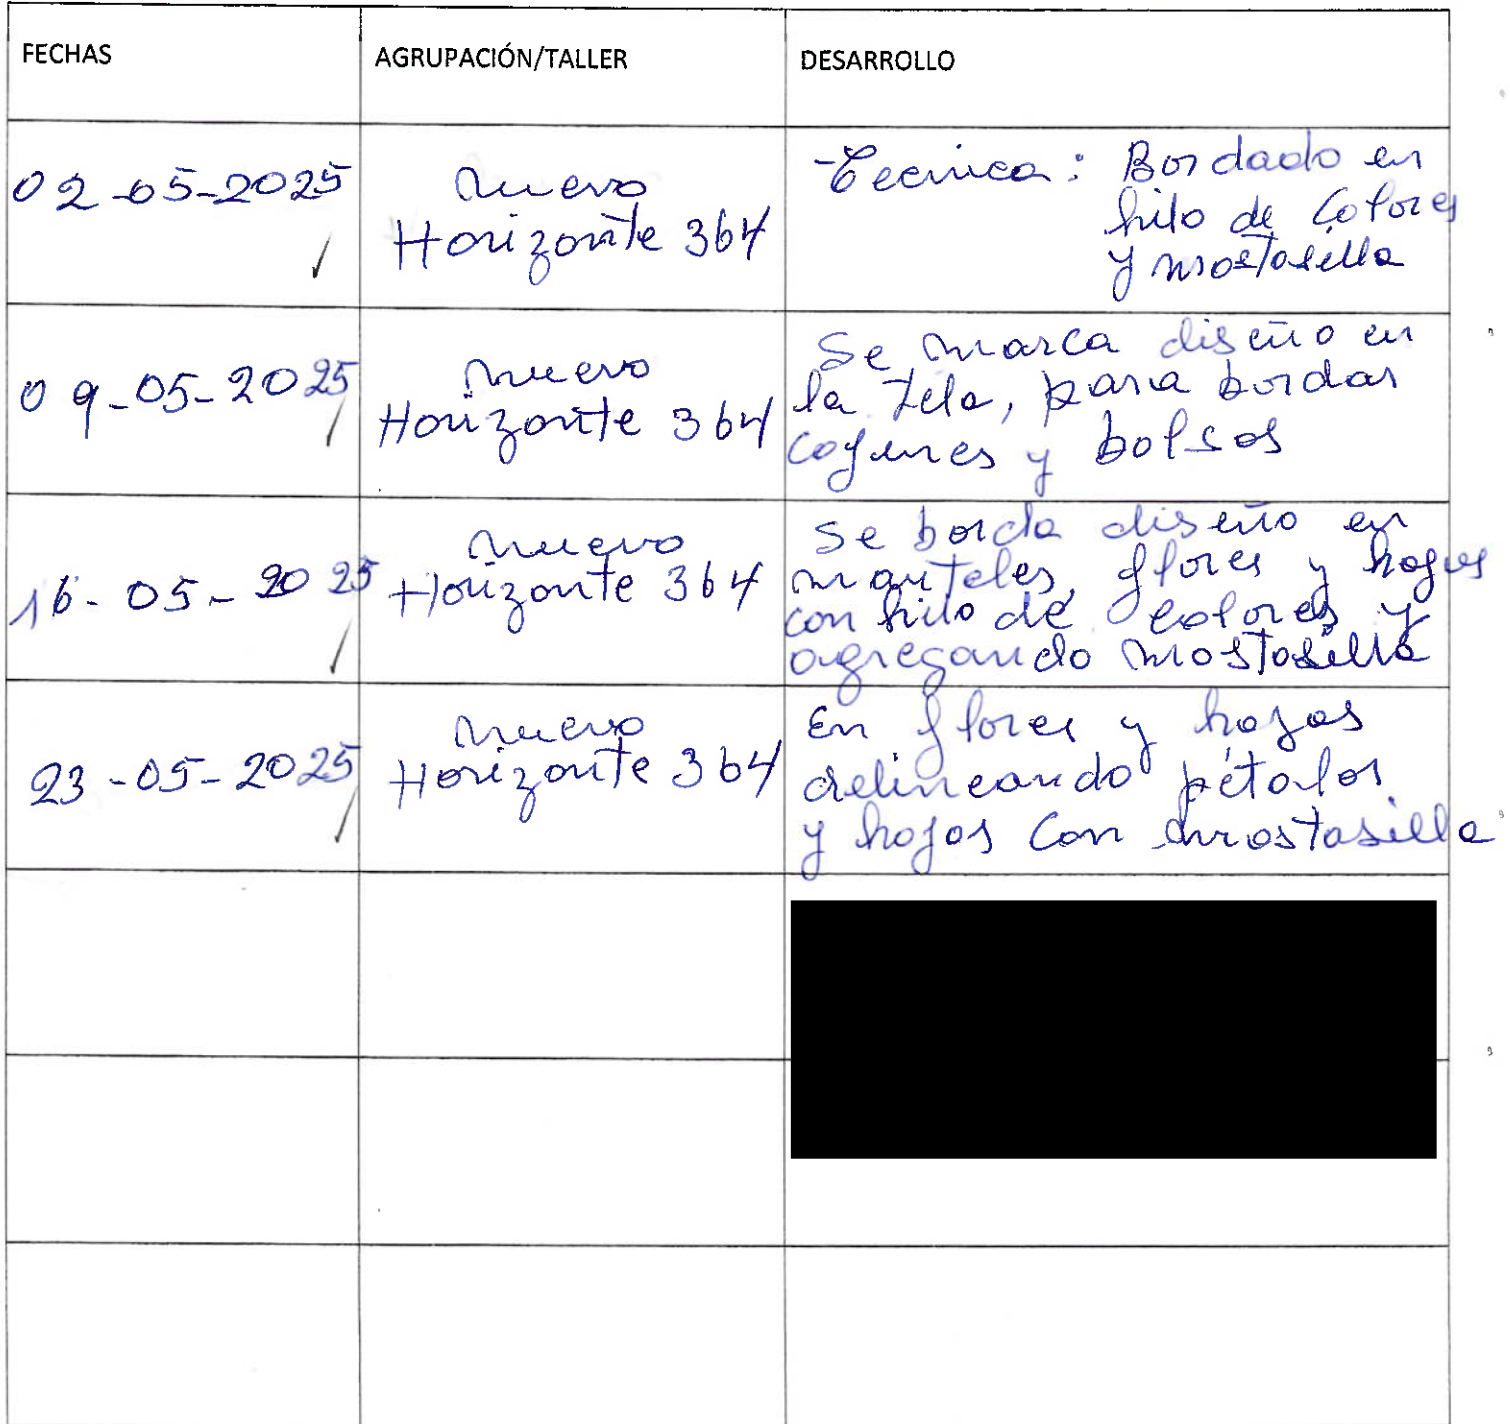 FECHAS
AGRUPACIÓN/TALLER
DESARROLLO
02-05-2025
Nuevo
Horizonte 364
-Tecnica: Bordado en
hilo de Colores
y mostasilla
09-05-2025
Nuevo
Horizonte 364
Se marca diseño en
la tela, para bordar
cojines y bolsos
16-05-2025
Nuevo
Horizonte 364
Se borda diseño en
manteles, flores y hojas
con hilo de colores y
agregando mostasilla
23-05-2025
Nuevo
Horizonte 364
En flores y hojas
delineando pétalos
y hojas con mostasilla